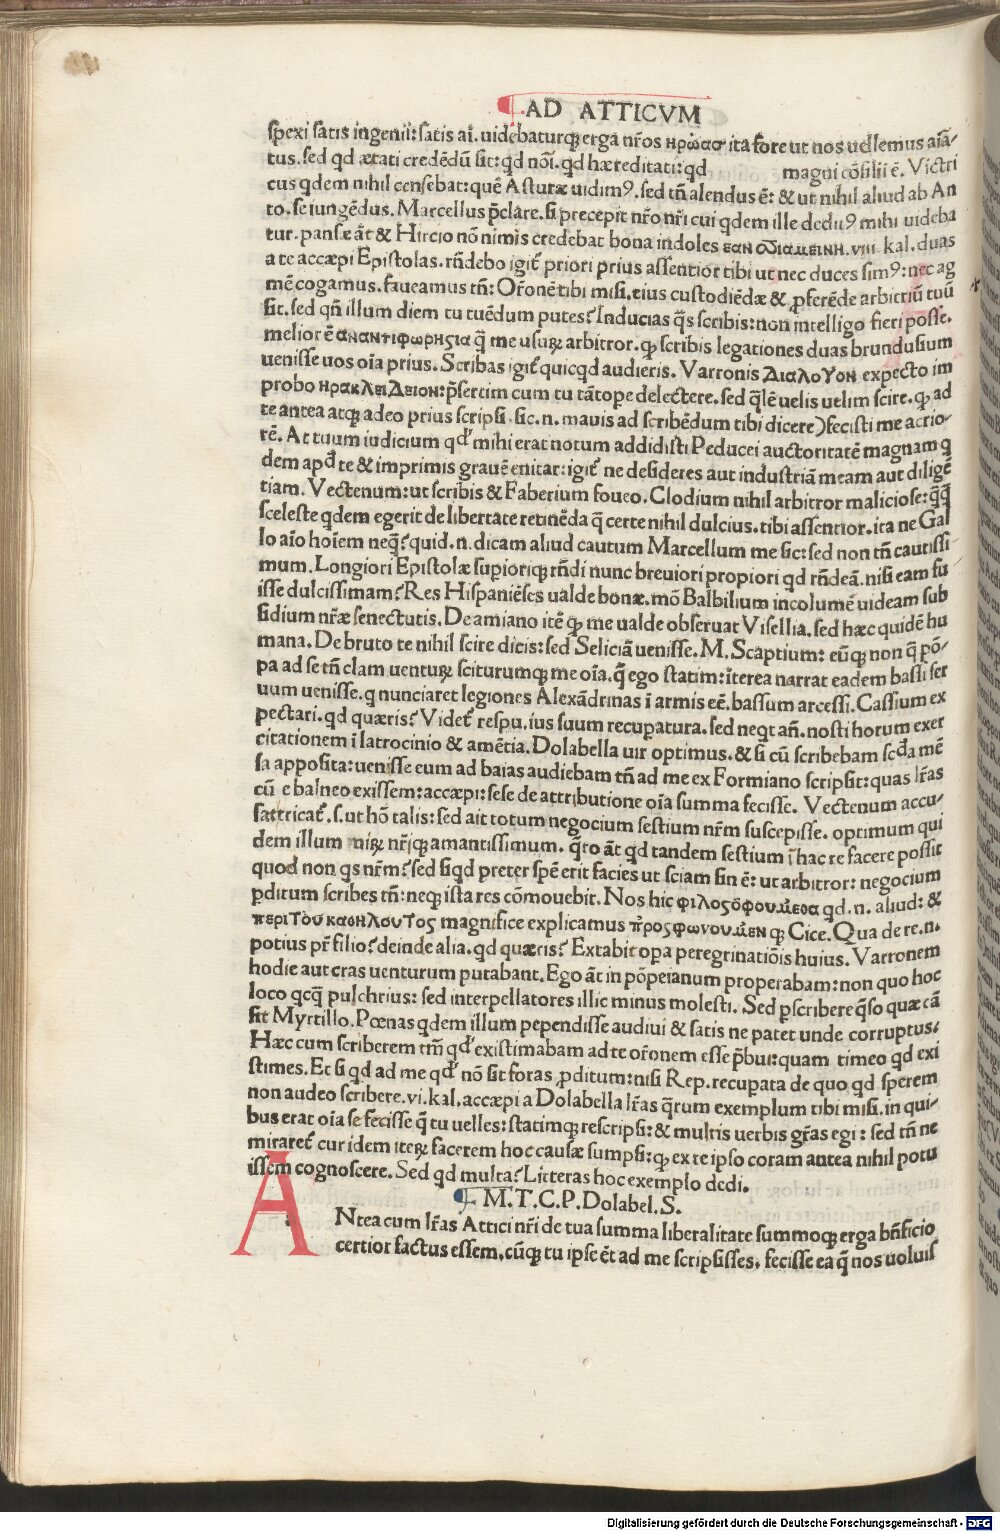 AD ATTICVM
spexi satis ingenii: satis aı̄. uidebaturq; erga nr̄os ηρώασ ita fore ut nos uellemus aīa-
tus. sed qd ætati credēdū sit: qd noı̄. qd hæreditati: qd magni cōsilii ē. Victri
cus qdem nihil censebat: quē Asturæ uidim9. sed tn̄ alendus ē: & ut nihil aliud ab An
to. se iungēdus. Marcellus p̄clare. si precepit nr̄o nr̄i cui qdem ille deditu9 mihi uideba
tur. pansæ āt & Hircio nō nimis credebat bona indoles εαν διαμεινη. viii. kal. duas
a te accæpi Epistolas. rn̄debo igit̄ priori prius assentior tibi ut nec duces sim9: nec ag
mē cogamus. faueamus tn̄: Or̄onē tibi misi. eius custodiēdæ & ꝓferēde arbitriū tuū
sit. sed qn̄ illum diem tu tuēdum putes? Inducias q̄s scribis: non intelligo fieri posse.
melior ē αναντιφωρηςια q̄ me usuꝝ arbitror. qꝫ scribis legationes duas brundusium
uenisse uos oīa prius. Scribas igit̄ quicqd audieris. Varronis Διαλογον expecto im
probo ηρακλειδειον: p̄sertim cum tu tātope delectere. sed q̄lē uelis uelim scire. qꝫ ad
te antea atq; adeo prius scripsi sic. n. mauis ad scribēdum tibi dicere) fecisti me acrio-
rē. At tuum iudicium qd' mihi erat notum addidisti Peducei auctoritatē magnam q
dem apd' te & imprimis grauē enitar: igit̄ ne desideres aut industriā meam aut diligē
tiam. Vectenum: ut scribis & Faberium foueo. Clodium nihil arbitror maliciose: q̄q̄
sceleste qdem egerit de libertate retinēda q̄ certe nihil dulcius. tibi assentior. ita ne Gal
lo aīo hoīem neq̄? quid. n. dicam aliud cautum Marcellum me sic: sed non tn̄ cautissi-
mum. Longiori Epistolæ supioriq; rn̄di nunc breuiori propiori qd rn̄deā. nisi eam fu
isse dulcissimam? Res Hispaniēses ualde bonæ. mō Balbilium incolumē uideam sub
sidium nr̄æ senectutis. De amiano itē qꝫ me ualde obseruat Visellia. sed hæc quidē hu
mana. De bruto te nihil scire dicis: sed Seliciā uenisse. M. Scaptium: eūq; non q̄ pō-
pa ad se tn̄ clam uentuꝝ sciturumq; me oīa. q̄ ego statim: īterea narrat eadem bassi ser
uum uenisse. q nunciaret legiones Alexādrinas ī armis eē. bassum arcessi. Cassium ex
pectari. qd quæris? Videt̄ respu. ius suum recupatura. sed neqt an̄. nosti horum exer
citationem ī latrocinio & amētia. Dolabella uir optimus. & si cū scribebam scda mē
sa apposita: uenisse eum ad baias audiebam tn̄ ad me ex Formiano scripsit: quas lr̄as
cū e balneo exissem: accæpi: sese de attributione oīa summa fecisse. Vectenum accu-
sat tricat̄. s. ut hō talis: sed ait totum negocium sestium nr̄m suscepisse. optimum qui
dem illum niꝝ nr̄iq; amantissimum. q̄ro āt qd tandem sestium ī hac re facere possit
quod non qs nr̄m? sed siqd preter spē erit facies ut sciam sin ē: ut arbitror: negocium
ꝑditum scribes tn̄: neq; ista res cōmouebit. Nos hic φιλοςόφουμεθα qd. n. aliud: &
περι Τοὺ καθηλουΤος magnifice explicamus π̀ροςφωνουμεν qꝫ Cice. Qua de re. n.
potius pr̄ filio? deinde alia. qd quæris? Extabit opa peregrinatiōis huius. Varronem
hodie aut cras uenturum putabant. Ego āt in pōpeianum properabam: non quo hoc
loco qcq̄ pulchrius: sed interpellatores illic minus molesti. Sed pscribere q̄so quæ cā
sit Myrtillo. Pœnas qdem illum pependisse audiui & satis ne patet unde corruptus.
Hæc cum scriberem tm̄ qd' existimabam ad te or̄onem esse p̄bui: quam timeo qd exi
stimes. Et si qd ad me qd' nō sit foras ꝓditum: nisi Rep. recupata de quo qd sperem
non audeo scribere. vi. kal. accæpi a Dolabella lr̄as q̄rum exemplum tibi misi. in qui-
bus erat oīa se fecisse q̄ tu uelles: statimq; rescripsi: & multis uerbis gr̄as egi: sed tn̄ ne
miraret̄ cur idem iteꝝ facerem hoc causæ sumpsi: qꝫ ex re ipso coram antea nihil potu
issem cognoscere. Sed qd multa? Litteras hoc exemplo dedi.
M. T. C. P. Dolabel. S.
ANtea cum lr̄as Attici nr̄i de tua summa liberalitate summoq; erga bn̄ficio
certior factus essem. cūq; tu ipse ēt ad me scripsisses. fecisse ea q̄ nos uoluis
Digitalisierung gefördert durch die Deutsche Forschungsgemeinschaft - DFG